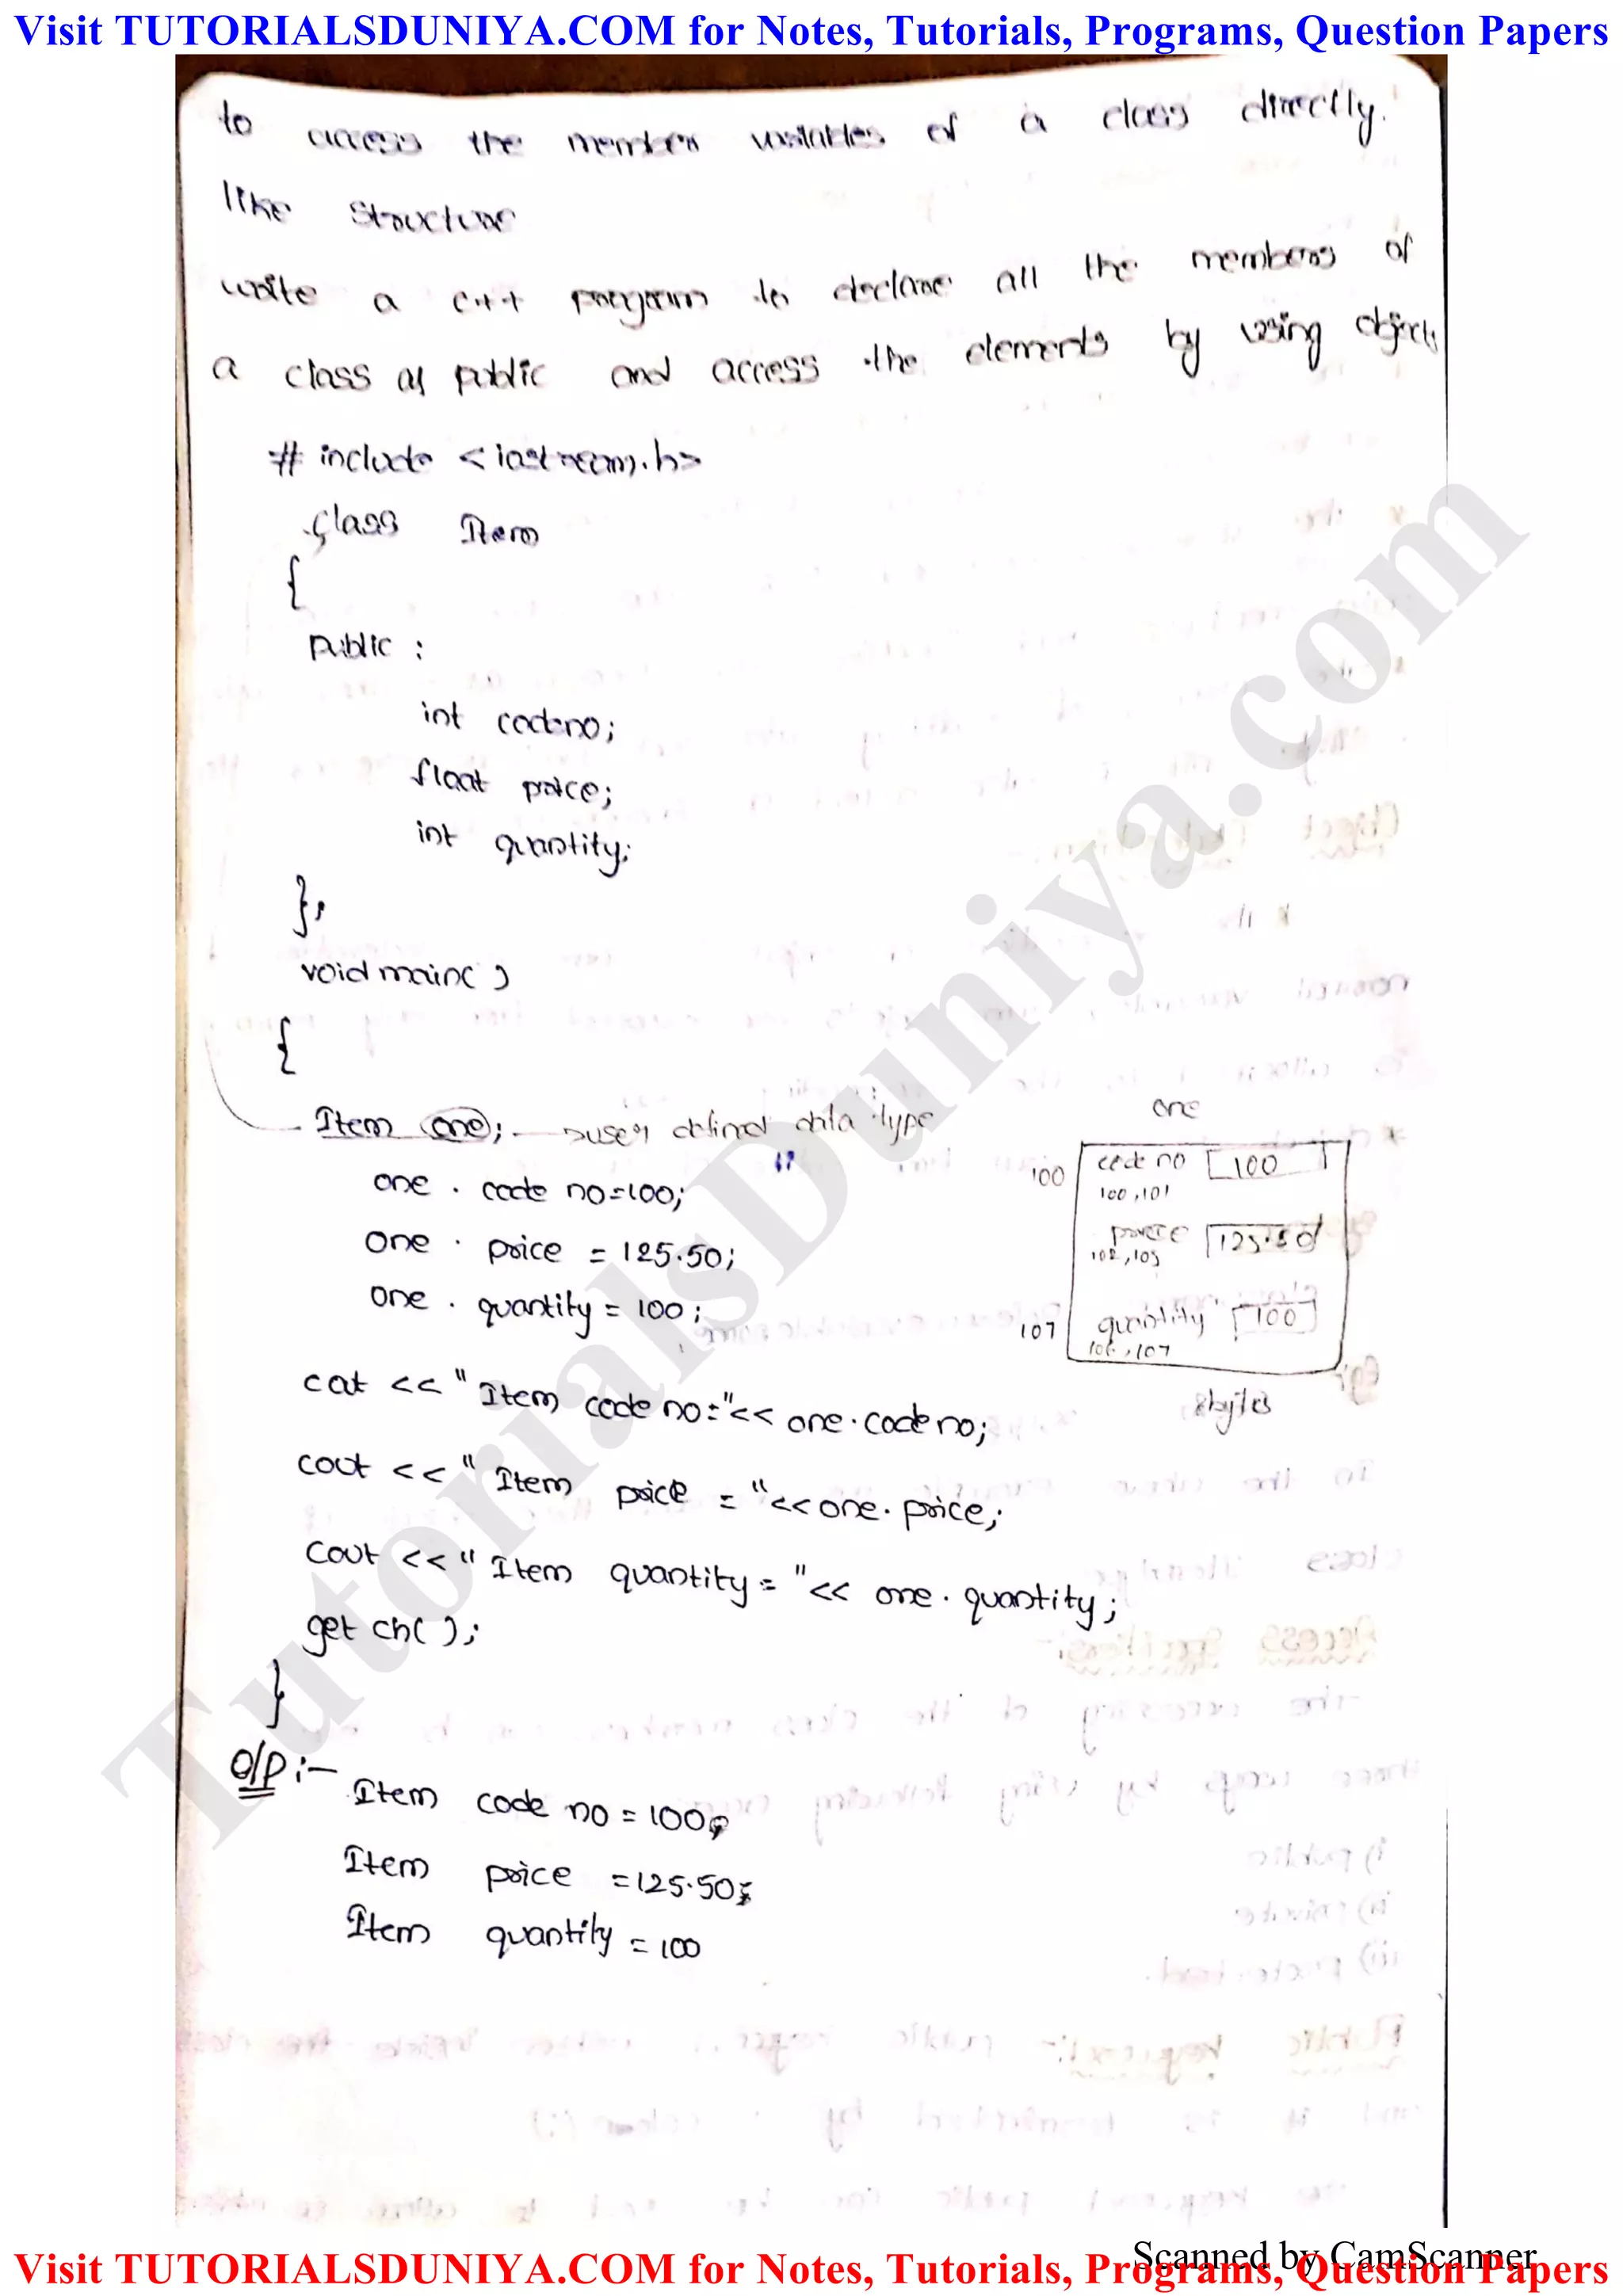 Visit TUTORIALSDUNIYA.COM for Notes, Tutorials, Programs, Question Papers
to access the member variables of a class directly.
like structure
write a c++ program to declare all the members of
a class as public and access the elements by using objects
# include <iostream.h>
class Item
{
public :
int codeno;
float price;
int quantity;
};
void main( )
{
Item one; user defined data type
one . code no=100;
one . price = 125.50;
one . quantity = 100;
one
100 code no 100
100,101
price 125.50
102,105
107 quantity 100
106,107
8bytes
cout << "Item code no="<< one.code no;
cout << "Item price = "<<one.price;
cout <<" Item quantity = "<< one.quantity;
get ch( );
}
O/P :-
Item code no = 100
Item price =125.50;
Item quantity = 100
TutorialsDuniya.com
Scanned by CamScanner
Visit TUTORIALSDUNIYA.COM for Notes, Tutorials, Programs, Question Papers